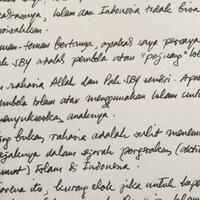 Islam dan Indonesia tidak bisa
pisahkan.
teman-teman bertanya, apakah saya percaya
Pak SBY adalah pembela atau "pejuang"
rahasia Allah dan Pak SBY sendiri. Apa
Islam atau menggunakan Islam untuk
anaknya.
bukan rahasia adalah sulit
jejaknya dalam sejarah pergerakan (akti
umat) Islam di Indonesia.
karena itu, kurang elok jika untuk